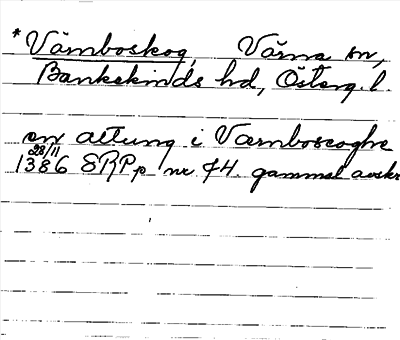 * Vämboskog, Värna sn,
Bankekinds hd, Österg. l.
en attung i Væmboscoghe
28/11
1386 SRPp nr 74. gammal avskr